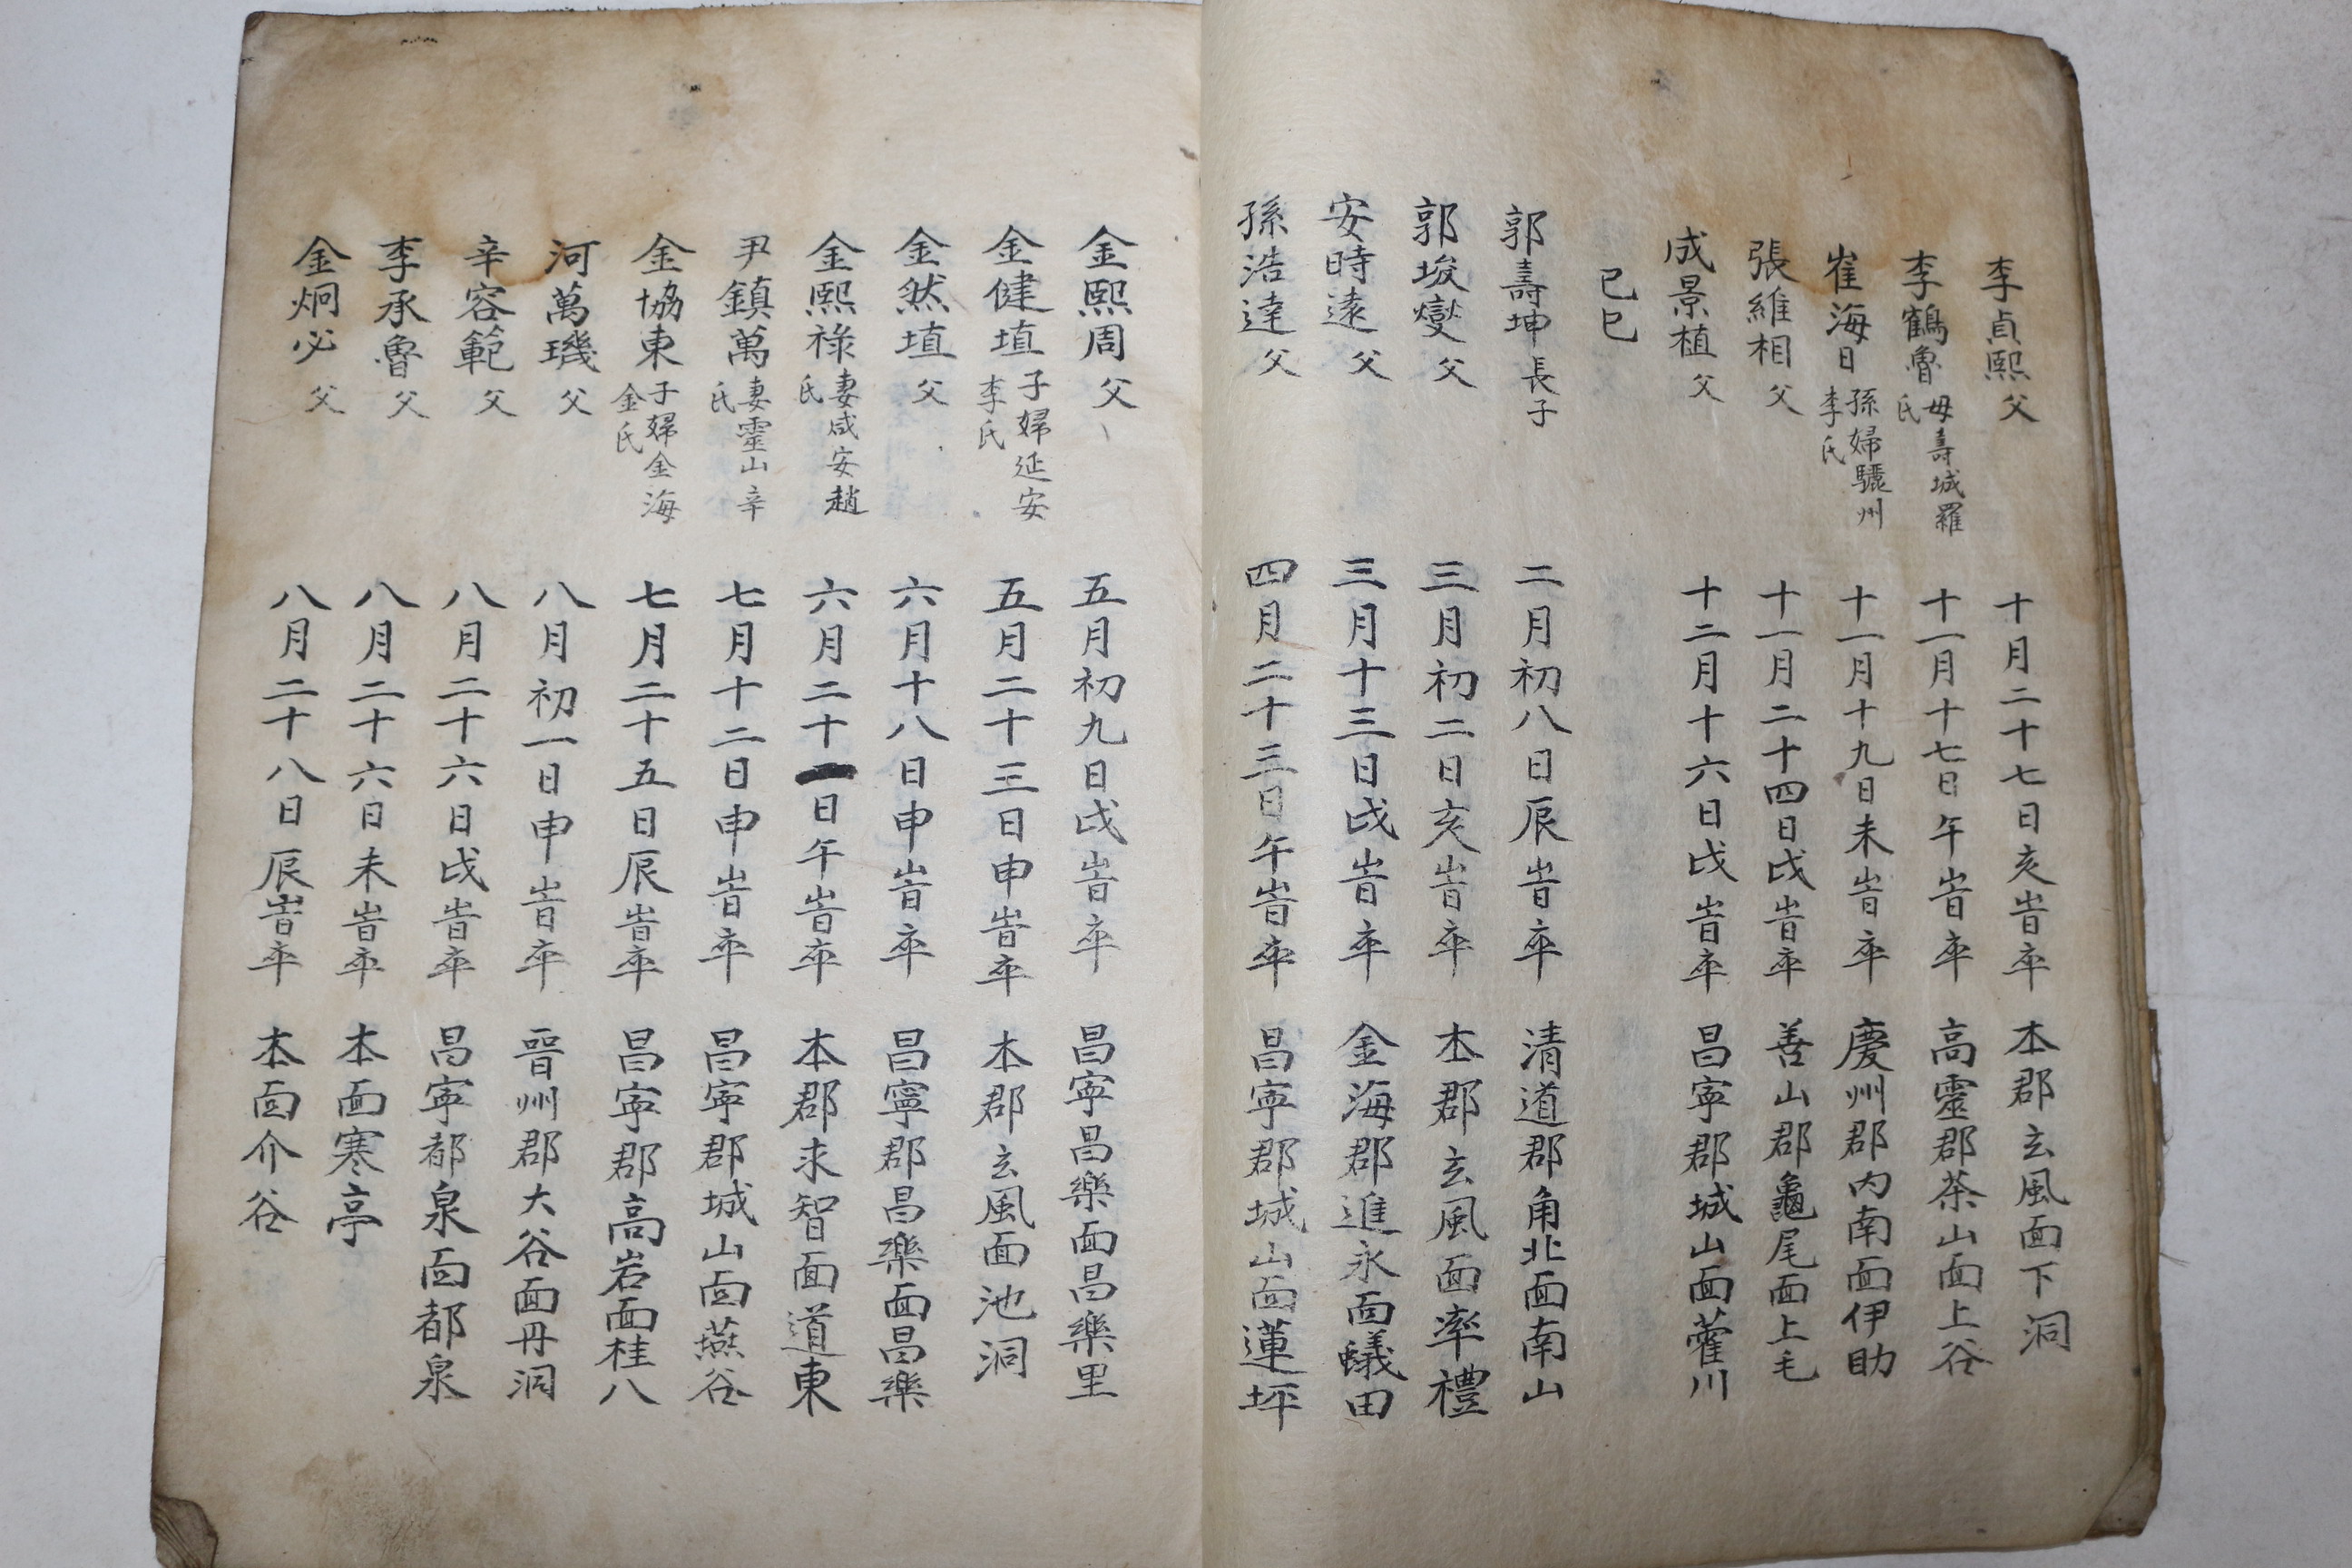 李貞熙父 十月二十七日亥旹卒 本郡玄風面下洞
李鶴魯母壽城羅氏 十一月十七日午旹卒 高靈郡茶山面上谷
崔海日孫婦驪州李氏 十一月十九日未旹卒 慶州郡内南面伊助
張維相父 十一月二十四日戌旹卒 善山郡龜尾面上毛
成景植父 十二月十六日戌旹卒 昌寍郡城山面藿川
己巳
郭壽坤長子 二月初八日辰旹卒 清道郡角北面南山
郭埈燮父 三月初二日亥旹卒 本郡玄風面率禮
安時遠父 三月十三日戌旹卒 金海郡進永面蟻田
孫浩達父 四月二十三日午旹卒 昌寍郡城山面蓮坪
金熙周父 五月初九日戌旹卒 昌寍昌樂面昌樂里
金健埴子婦延安李氏 五月二十三日申旹卒 本郡玄風面池洞
金然埴父 六月十八日申旹卒 昌寧郡昌樂面昌樂
金熙祿妻咸安趙氏 六月二十一日午旹卒 本郡求智面道東
尹鎮萬妻靈山辛氏 七月十二日申旹卒 昌寍郡城山面燕谷
金協東子婦金海金氏 七月二十五日辰旹卒 昌寍郡高岩面桂八
河萬璣父 八月初一日申旹卒 晉州郡大谷面丹洞
辛容範父 八月二十六日戌旹卒 昌寍都泉面都泉
李承魯父 八月二十六日未旹卒 本面寒亭
金炯必父 八月二十八日辰旹卒 本面介谷